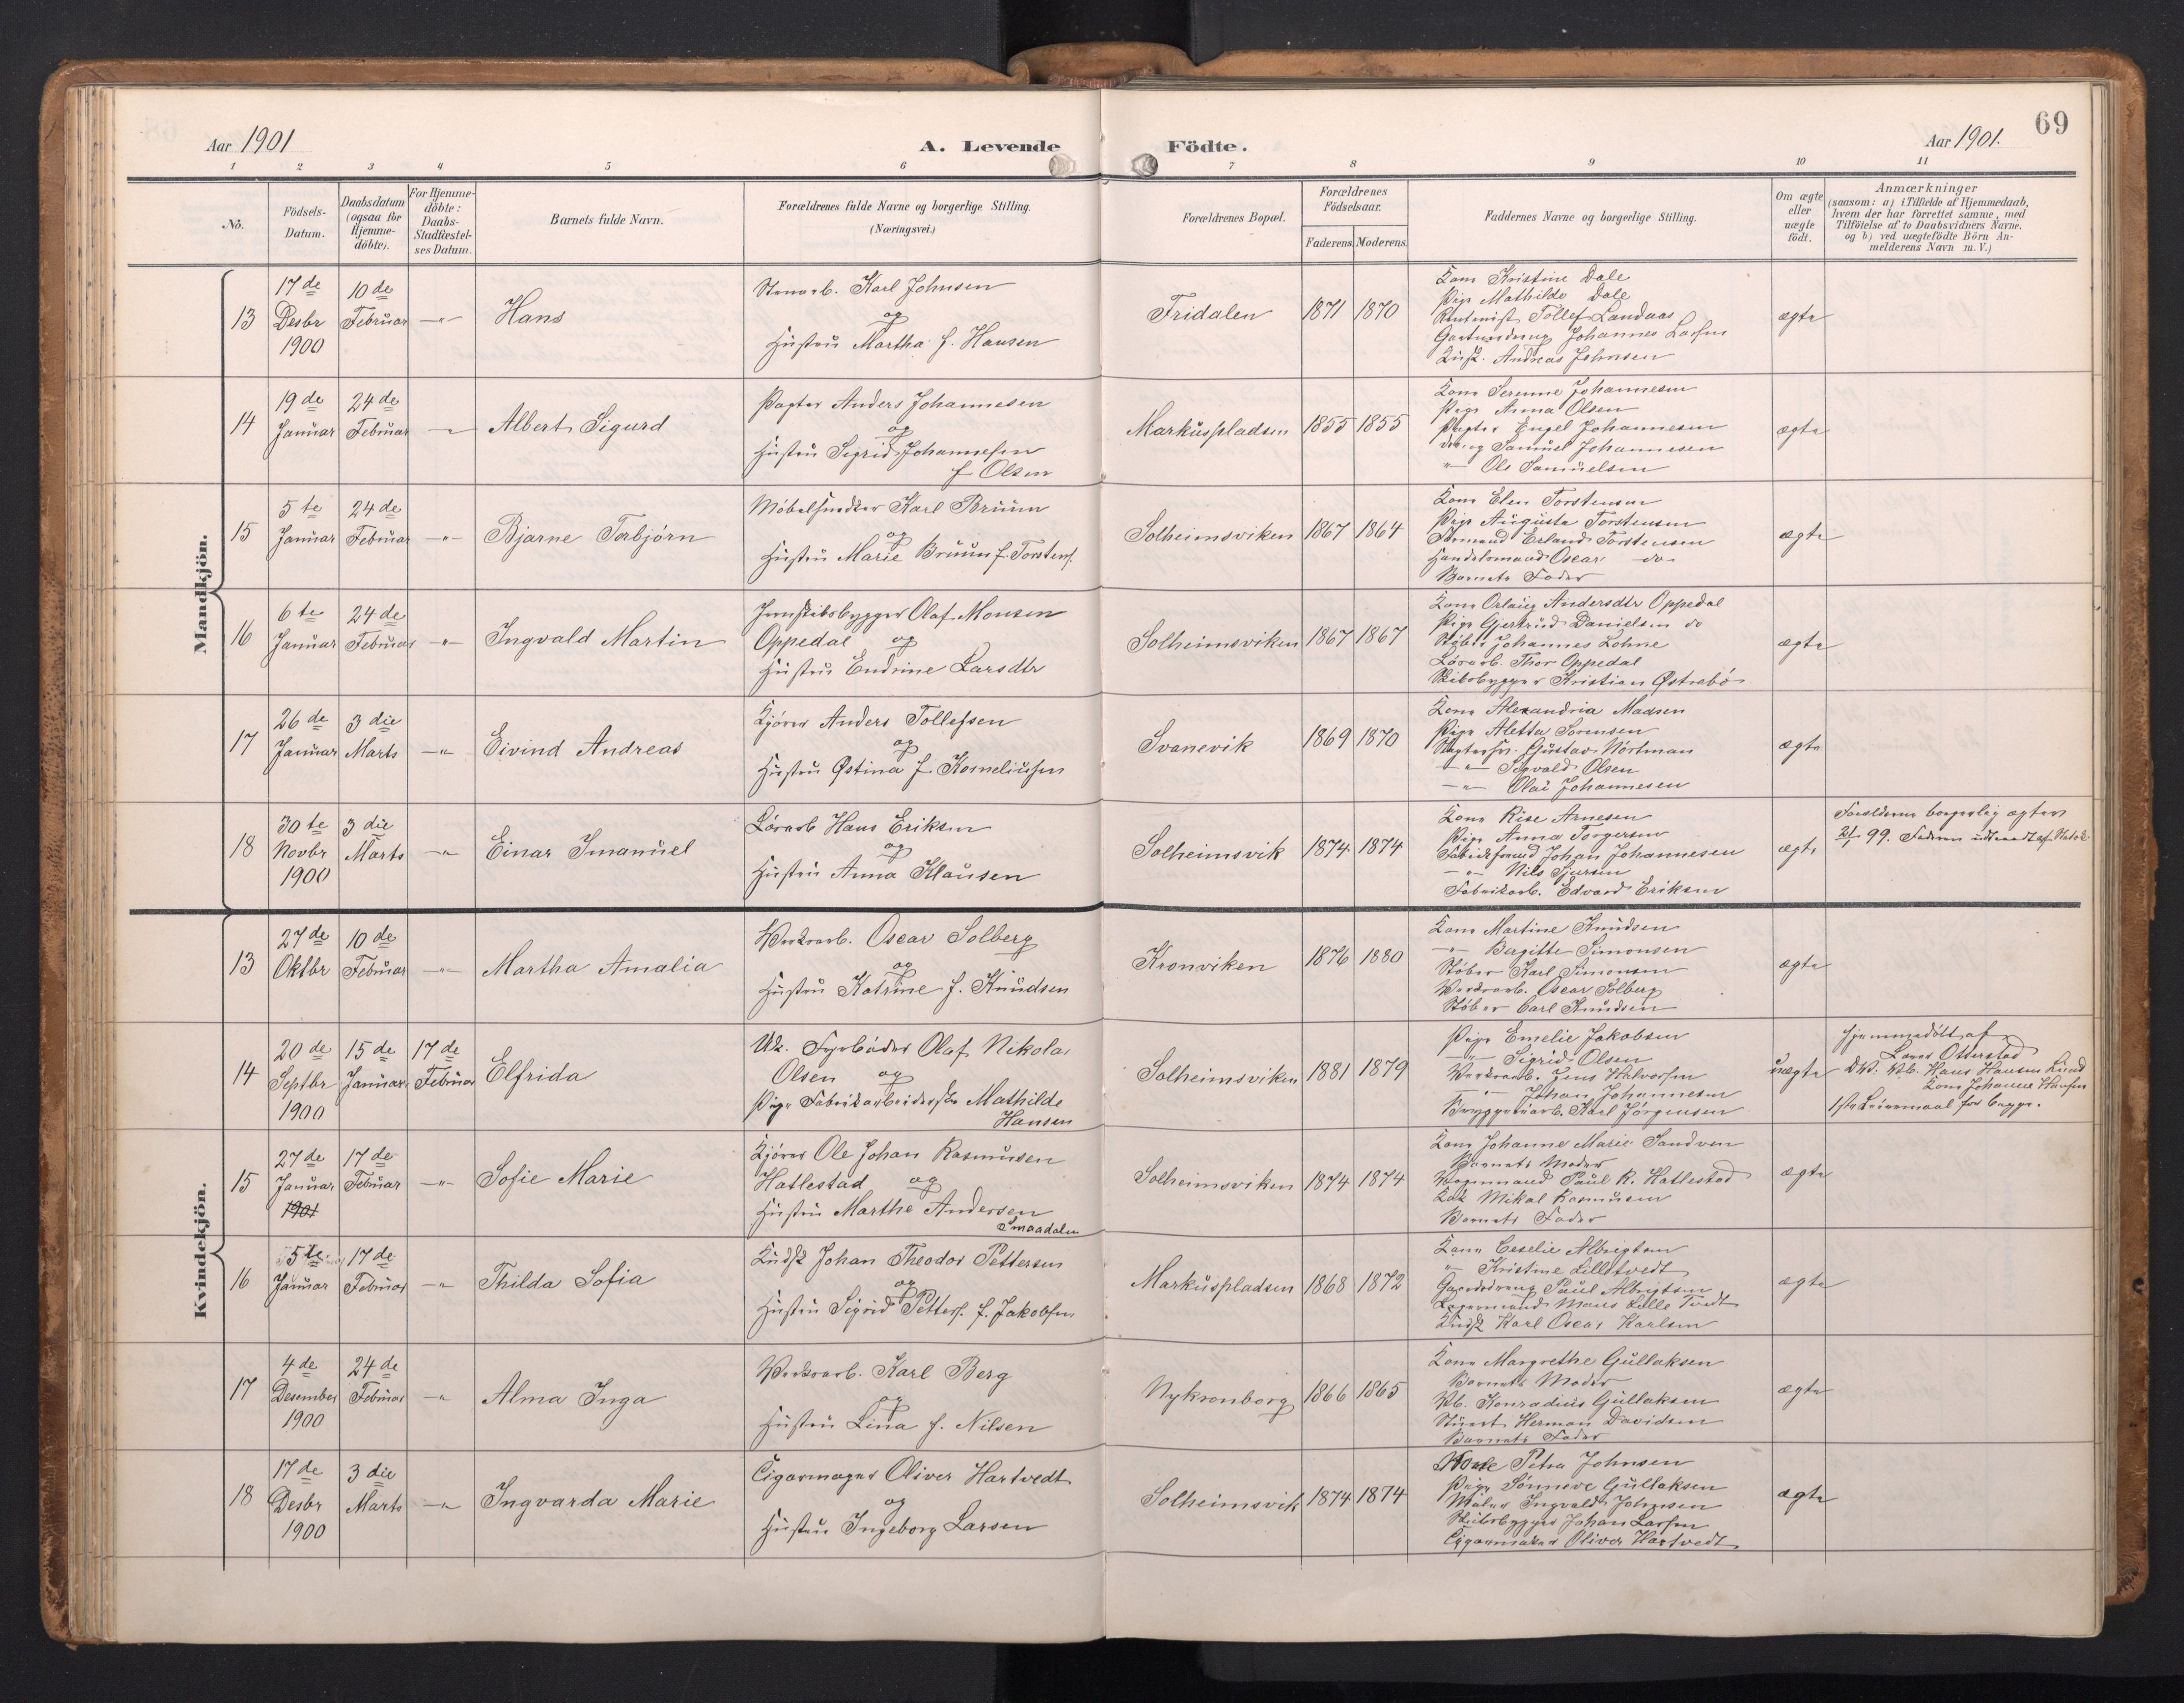 69
Aar 1901
A. Levende Födte.
Aar 1901.
1 2 3 4 5 6 7 8 9 10 11
No.
Födsels-
Datum.
Daabsdatum
(ogsaa for
Hjemme-
döbte).
For Hjemme-
döbte:
Daabs-
Stadfæstel-
ses Datum.
Barnets fulde Navn.
Forældrenes fulde Navne og borgerlige Stilling.
(Næringsvei.)
Forældrenes Bopæl.
Forældrenes
Födselsaar.
Faderens. Moderens.
Faddernes Navne og borgerlige Stilling.
Om ægte
eller
uægte
födt.
Anmærkninger
(saasom: a) i Tilfælde af Hjemmedaab,
hvem der har forrettet samme, med
Tilföielse af to Daabsvidners Navne.
og b) ved uægtefödte Börn An-
melderens Navn m. V.)
Mandkjön.
13
17de
Desbr
1900
10de
Februar
—"—
Hans
Karl Johnsen
og
Hustru Martha f. Hansen
Fridalen
1871 1870
Kone Kristine Dale
Pige Mathilde Dale
Tollef Landaas
Johannes Larsen
Kusk. Andreas Johnsen
ægte
14
19de
Januar
24de
Februar
—"—
Albert Sigurd
Pagter Anders Johannesen
og
Hustru Sigrid Johannesen
f Olsen
Markuspladsen
1855 1855
Kone Serenne Johannesen
Pige Anna Olsen
Pagter Engel Johannesen
dreng Samuel Johannesen
—"— Ole Samuelsen
ægte
15
5te
Januar
24de
Februar
—"—
Bjarne Torbjørn
Möbelsnedker Karl Bruun
og
Hustru Marie Bruun f. Torstens.
Solheimsviken
1867 1864
Kone Elen Torstensen
Pige Augusta Torstensen
Formand Erland Torstensen
Handelsmand Oscar do
Barnets Fader
ægte
16
6te
Januar
24de
Februar
—"—
Ingvald Martin
Jernskibsbygger Olaf Monsen
Oppedal og
Hustru Endrine Larsdtr
Solheimsviken
1867 1867
Kone Orlaug Andersdtr Oppedal
Pige Gjertrud Danielsen do
Støber Johannes Lohne
Lösarb. Thor Oppedal
Skibsbygger Kristian Østrebö
ægte
17
26de
Januar
3die
Marts
—"—
Eivind Andreas
Kjörer Anders Tollefsen
og
Hustru Østina f. Korneliusen
Svanevik
1869 1870
Kone Alexandria Madsen
Pige Aletta Sorensen
Gustav Nortman
—"— Sigvald Olsen
—"— Olai Johannesen
ægte
18
30te
Novbr
1900
3die
Marts
—"—
Einar Imanuel
Lösarb Hans Eriksen
og
Hustru Anna Klausen
Solheimsvik
1874 1874
Kone Rise Arnesen
Pige Anna Torgersen
Johan Johannesen
—"— Nils
Fabrikarb. Edvard Eriksen
ægte
Forældrene borgerlig ægtev.
99. Faderen udtraadt af Statsk.
Kvindekjön.
13
27de
Oktbr
10de
Februar
—"—
Martha Amalia
Værksarb. Oscar Solberg
og
Hustru Katrine f. Knudsen
Kronviken
1876 1880
Kone Martine Knudsen
—"— Bergitte Simonsen
Støber Karl Simonsen
Værksarb. Oscar Solberg
Støber Carl Knudsen
ægte
14
20de
Septbr
1900
15de
Januar
17de
Februar
Elfrida
Uk. Fyrböder Olaf Nikolai
Olsen og
Pige Fabrikarbeiderske Mathilde
Hansen
Solheimsviken
1881 1879
Pige Emelie Jakobsen
—"— Sigrid Olsen
Værksarb. Jens Halvorsen
—"— Johan Johannesen
Bryggeriarb. Karl Jörgensen
uægte
Hjemmedöbt af
Lars Otterstad
Hans Hansen Lund
Kone Johanne Hansen
1ste Leiermaal for begge.
15
27de
Januar
1901
17de
Februar
—"—
Sofie Marie
Kjörer Ole Johan Rasmusen
Hatlestad og
Hustru Marthe Andersen
Smaadalen
Solheimsviken
1874 1874
Kone Johanne Marie Sandven
Barnets Moder
Vognmand Paul R. Hatlestad
Mikal Rasmusen
Barnets Fader
ægte
16
5te
Januar
17de
Februar
—"—
Thilda Sofia
Kudsk Johan Theodor Pettersen
og
Hustru Sigrid Petters. f. Jakobsen
Markuspladsen
1868 1872
Kone Ceselie Albrigtsen
" Kristine Lilletvedt
Gaardsdreng Paul Albrigtsen
Lagermand Mons Lille Tvedt
Kudsk Karl Oscar Karlsen
ægte
17
4de
Desember
1900
24de
Februar
—"—
Alma Inga
Værksarb. Karl Berg
og
Hustru Lina f. Nilsen
Nykronborg
1866 1865
Kone Margrethe Gullaksen
Barnets Moder
Konradius Gullaksen
Stuert Herman Davidsen
Barnets Fader
ægte
18
17de
Desbr
1900
3die
Marts
—"—
Ingvarda Marie
Cigarmager Oliver Hartvedt
og
Hustru Ingeborg Larsen
Solheimsvik
1874 1874
Kone Petra Johnsen
Pige Sönneve Gullaksen
Maler Ingvald Johnsen
Skibsbygger Johan Larsen
Cigarmaker Oliver Hartvedt
ægte